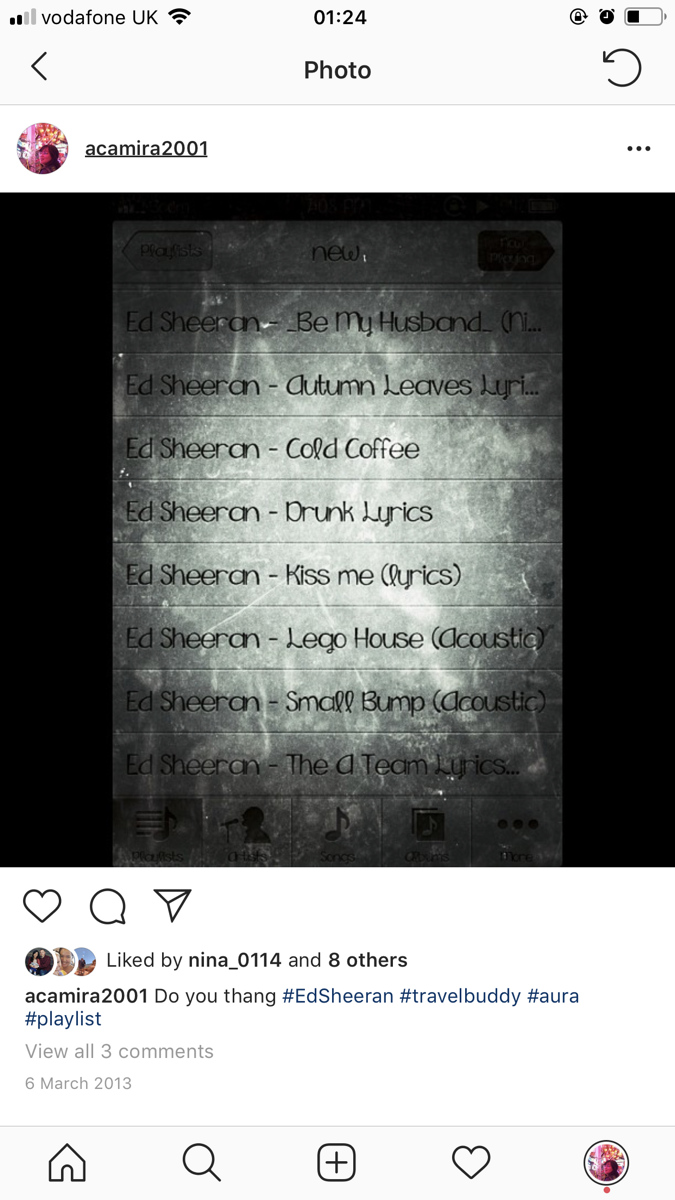 vodafone UK 01:24
Photo
acamira2001
Playlists new Now Playing
Ed Sheeran - _Be My Husband_ (Ni...
Ed Sheeran - Autumn Leaves Lyri...
Ed Sheeran - Cold Coffee
Ed Sheeran - Drunk Lyrics
Ed Sheeran - Kiss me (lyrics)
Ed Sheeran - Lego House (Acoustic)
Ed Sheeran - Small Bump (Acoustic)
Ed Sheeran - The A Team Lyrics...
Playlists Artists Songs Albums More
Liked by nina_0114 and 8 others
acamira2001 Do you thang #EdSheeran #travelbuddy #aura
#playlist
View all 3 comments
6 March 2013